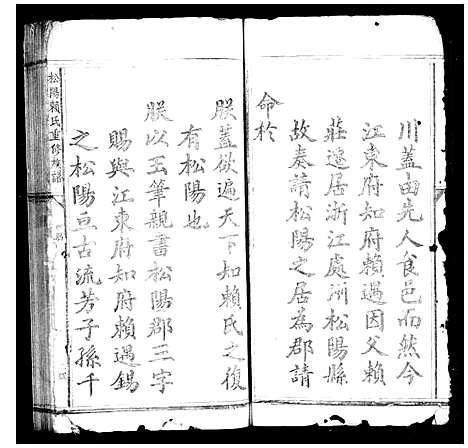 川蓋由先人食邑而然今
江東府知府賴遇因父賴
莊遷居浙江處洲松陽縣
故奏請松陽之居為郡請
命於
朕蓋欲遍天下知賴氏之復
有松陽也
朕以玉筆親書松陽郡三字
賜與江東府知府賴遇錫
之松陽亘古流芳子孫千
松陽賴氏重修族譜